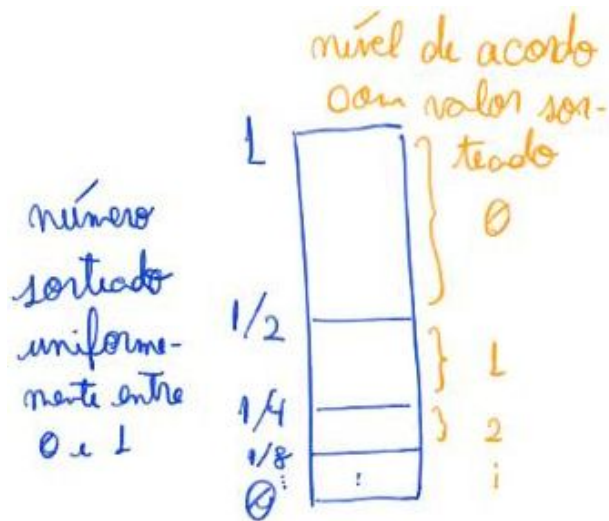 nível de acordo
com valor sor-
teado
1
número
sorteado
uniforme-
mente entre
0 e 1
0
1/2
1
1/4
2
1/8
⋮
⋮
i
0